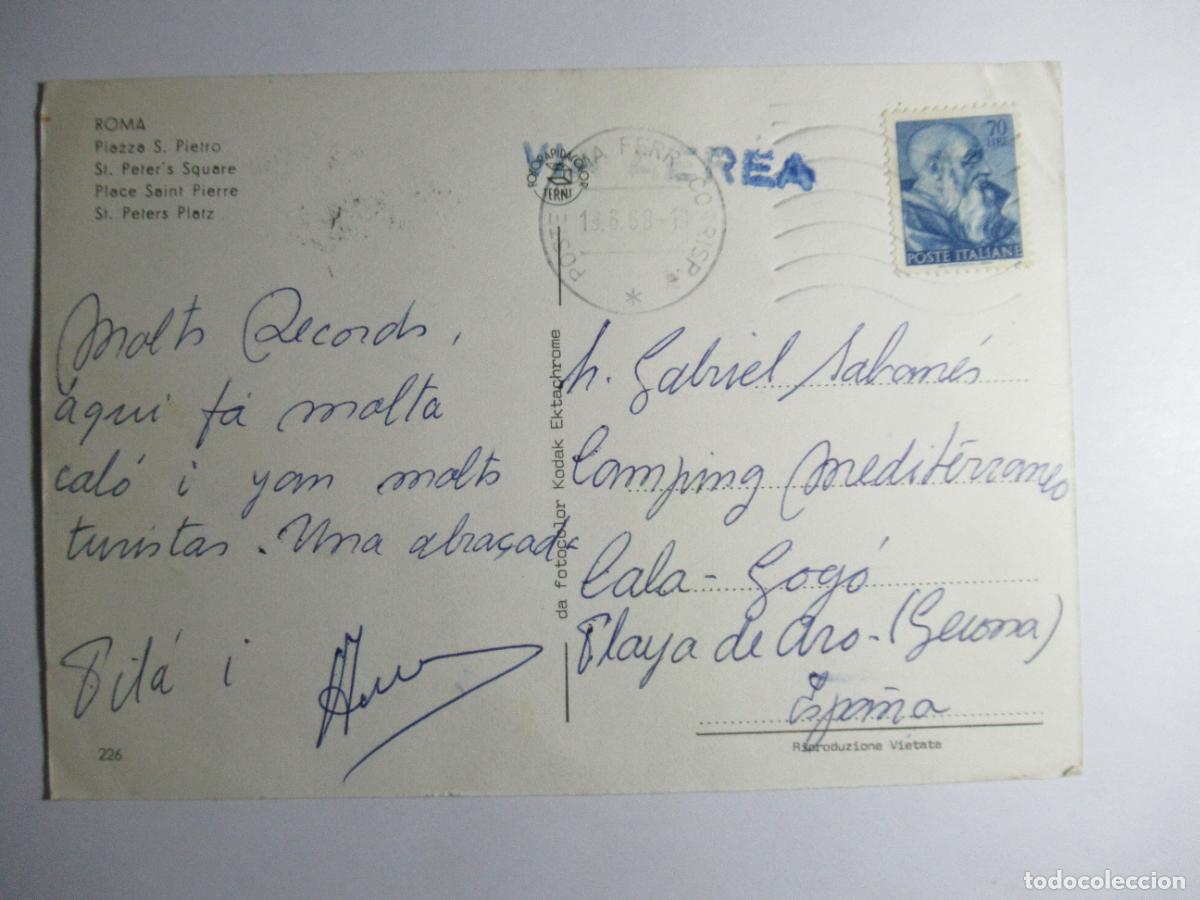 ROMA
Piazza S. Pietro
St. Peter's Square
Place Saint Pierre
St. Peters Platz
Molts Records,
áqui fá molta
caló i yan molts
turistas. Una abraçada
Pilá i
226
da fotocolor Kodak Ektachrome
FOTORAPIDACOLOR
TERNI
AEREA
POSTE ROMA FERR. CORRISP.
13.6.68-19
70
LIRE
POSTE ITALIANE
Gabriel Sabanés
Camping Mediterraneo
Cala-Gogó
Playa de Aro-(Gerona)
España
Riproduzione Vietata
todocoleccion